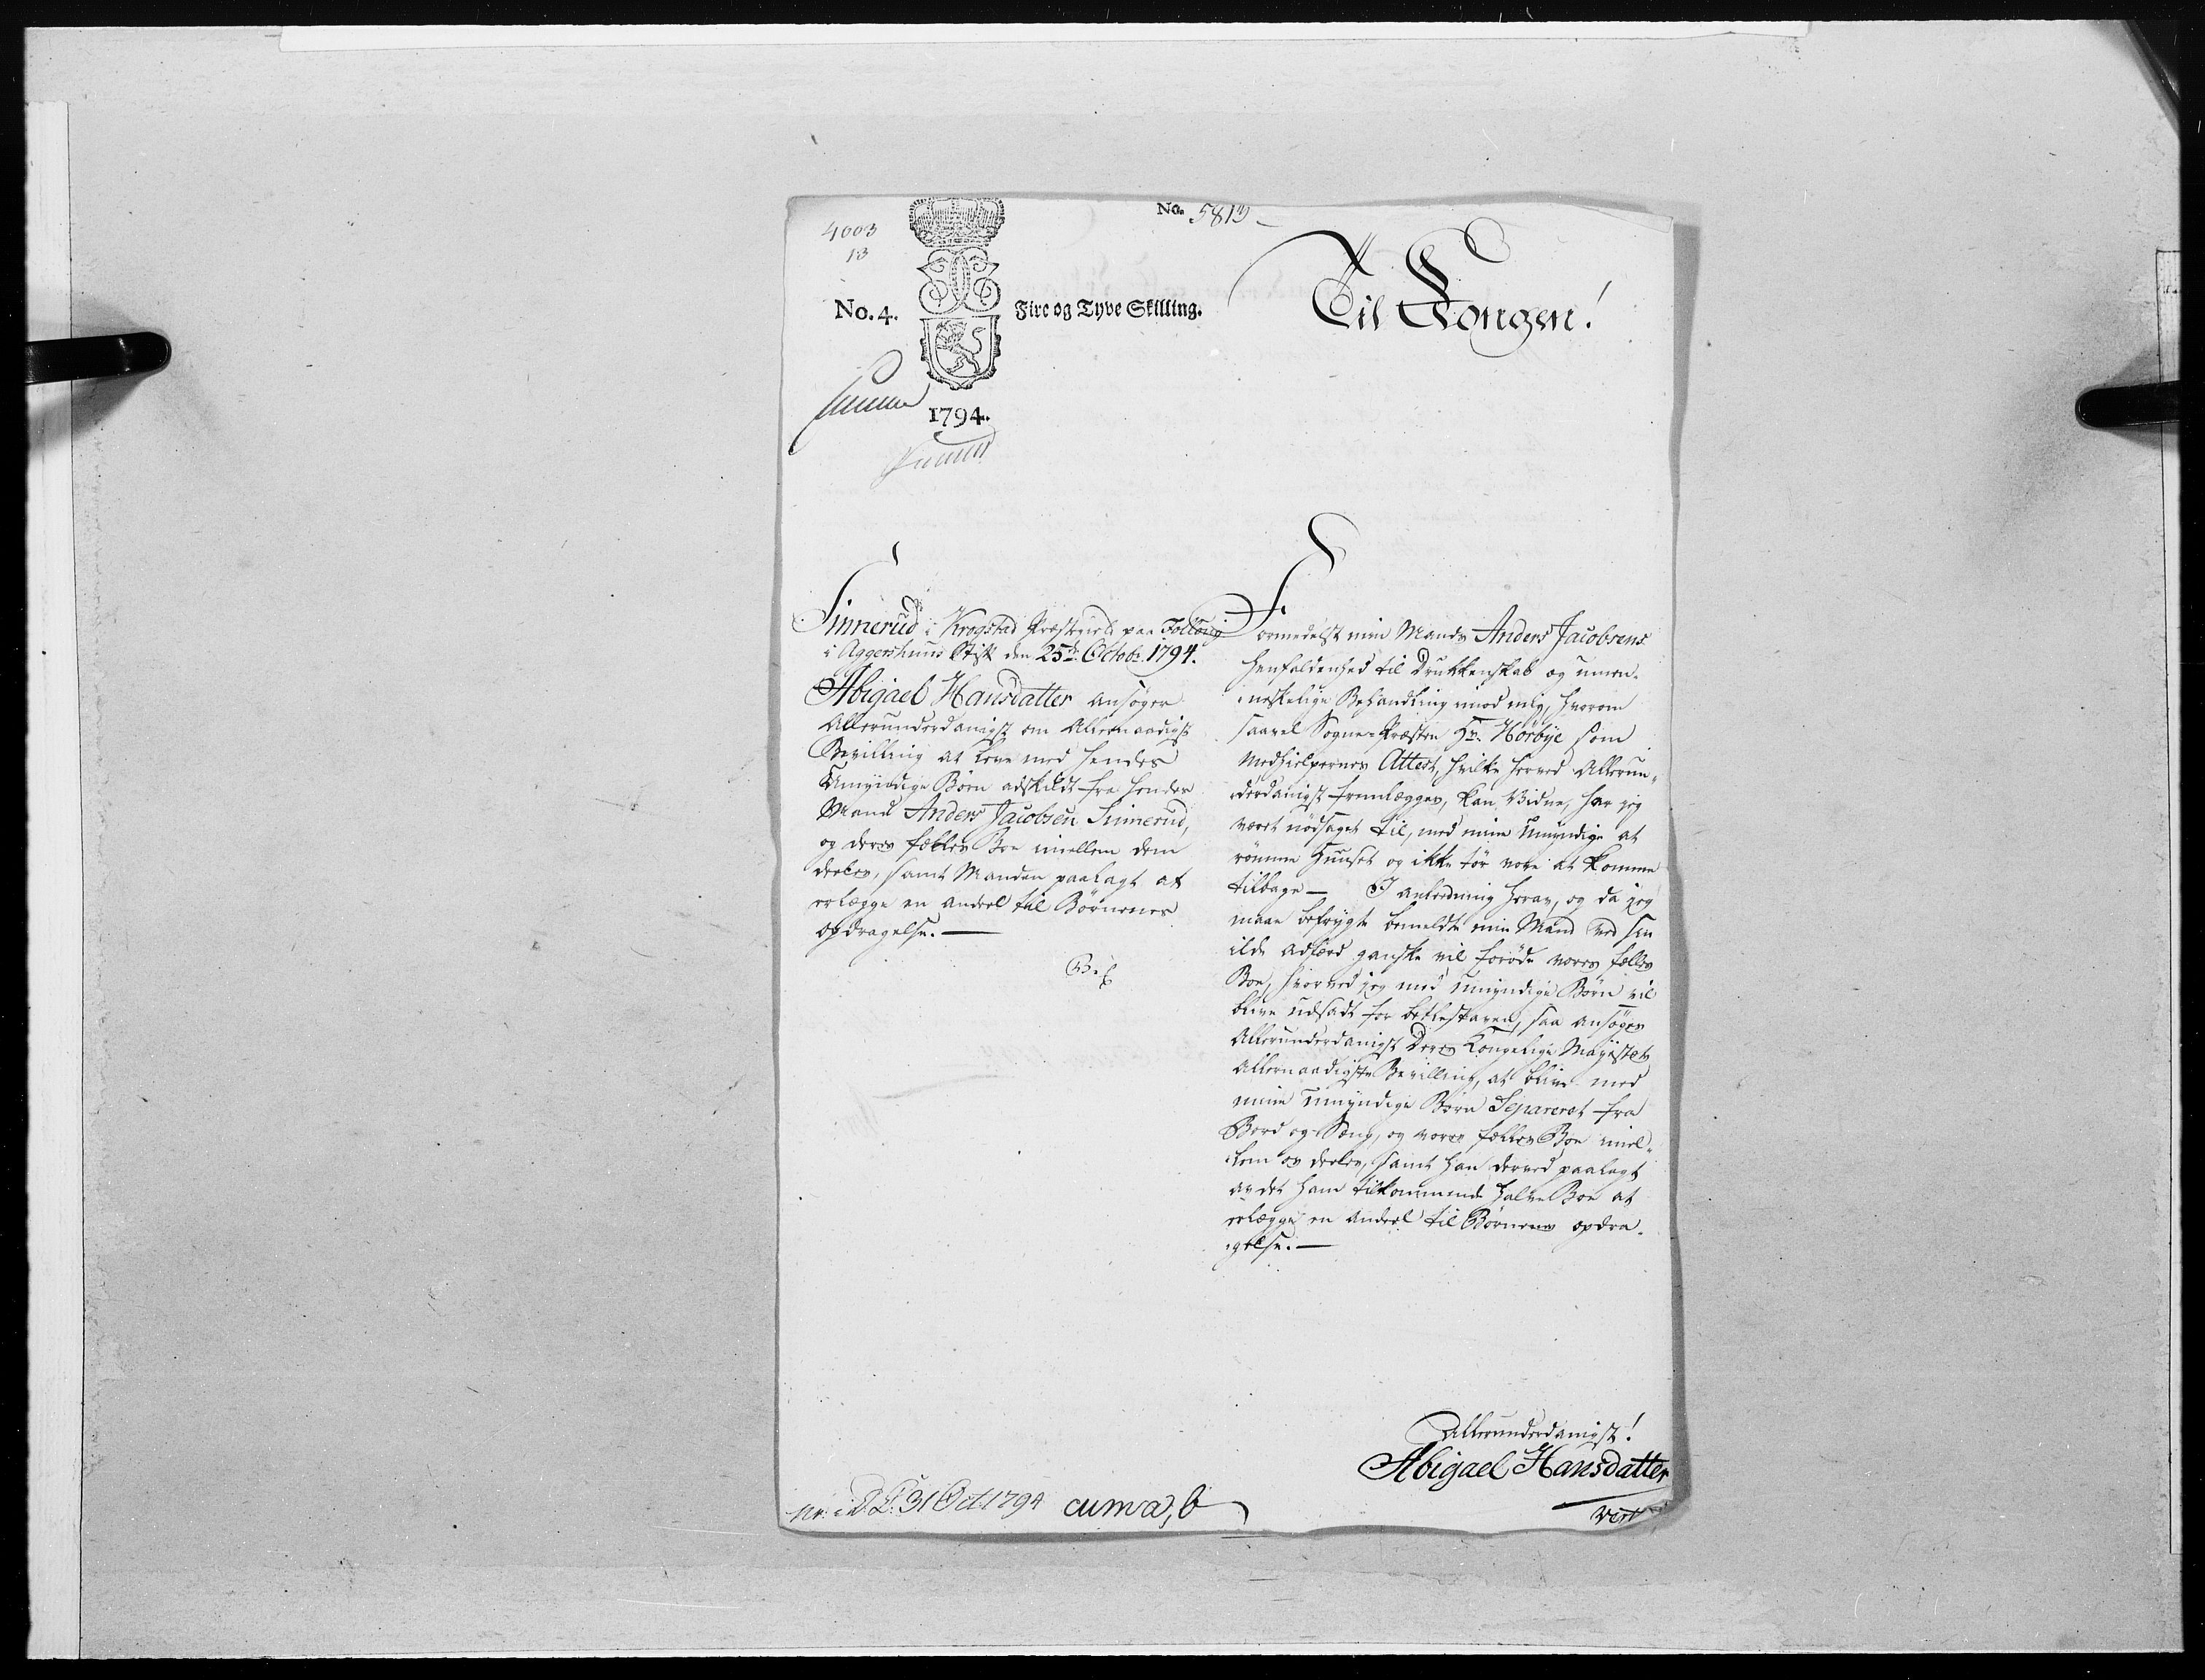 4003
13
No. 5813
No. 4.
Fire og Tyve Skilling.
1794.
Til Kongen!
Sinnerud i Krogstad Præstegield paa Follong
i Aggershuus Stift den 25de Octobr 1794.
Abigael Hansdatter ansøger
Allerunderdanigst om Allernaadigst
Bevilling at leve med hendes
Umyndige Børn adskildt fra hendes
Mand Anders Jacobsen Sinnerud,
og deres fælles Boe imellem dem
deeles, samt Manden paalagt at
erlægge en andeel til Børnenes
opdragelse. —
Formedelst min Mands Anders Jacobsens
henfaldenhed til Drukkenskab og umen-
neskelige Behandling imod mig, hvorom
saavel Sogne-Præsten Hr. Hörbye som
Medhielpernes Attest, hvilke herved Allerun„
derdanigst fremlægges, kan Vidne, har jeg
været nödsaget til, med mine Umyndige at
römme Huuset og ikke tör vove at komme
tilbage — I anledning herav, og da jeg
maae befrygte bemeldte min Mand ved sin
ilde adfærd ganske vil forøde vores fælles
Boe, hvorved jeg med umyndige Börn vil
blive udsadt for betlestaven, saa ansøges
Allerunderdanigst Deres Kongelige Mayestets
Allernaadigste Bevilling, at blive med
mine umyndige Börn Separeret fra
Bord og Seng, og vores fælles Boe imel„
lem os deeles, samt han derved paalagt
av det ham tilkommende halve Boe at
erlægge en Andeel til Børnenes opdra-
gelse. —
Allerunderdanigst!
Abigael Hansdatter
31 Oct 1794 cum a, b
Vert